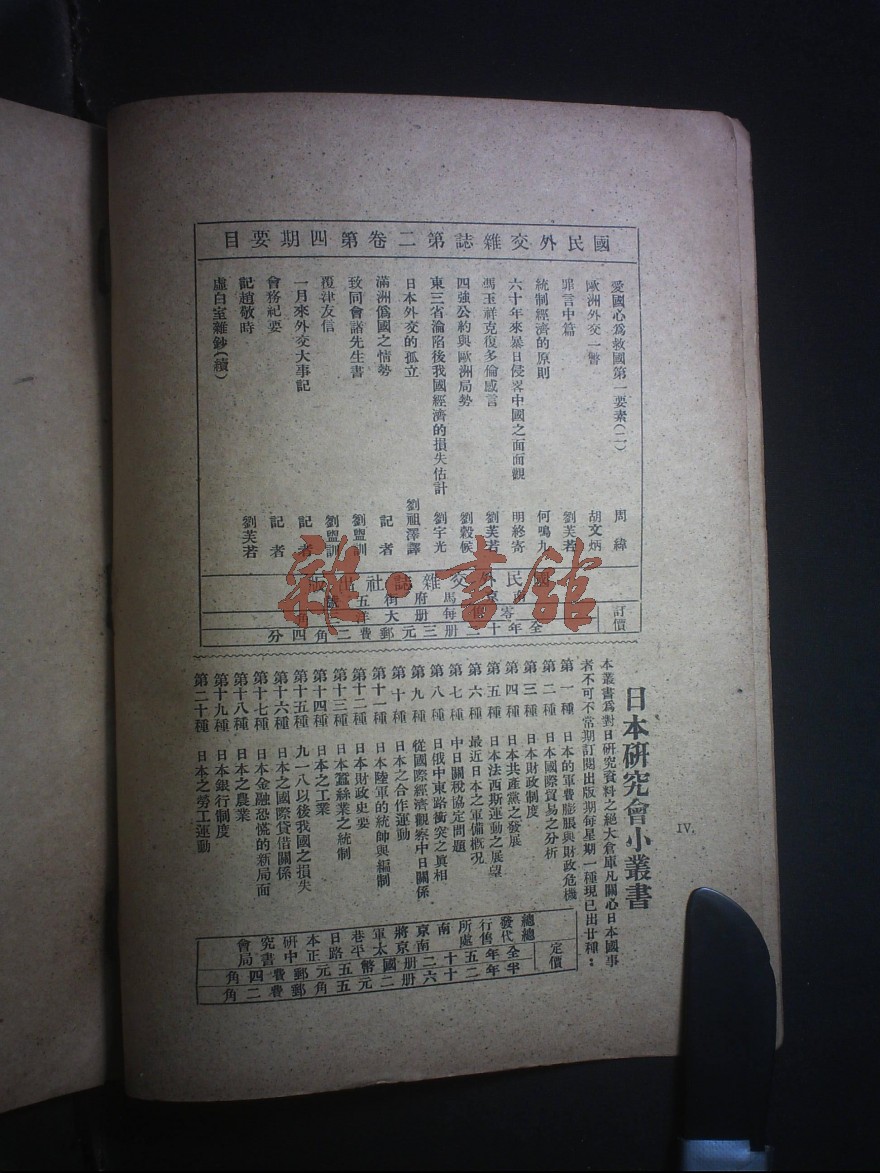 國民外交雜誌第二卷第四期要目
愛國心爲救國第一要素(二) 周緯
歐洲外交一瞥 胡文炳
罪言中篇 劉芙若
統制經濟的原則 何鳴九
六十年來暴日侵畧中國之面面觀 明終寄
馮玉祥克復多倫感言 劉芙若
四強公約與歐洲局勢 劉穀候
東三省淪陷後我國經濟的損失估計 劉宇光
日本外交的孤立 劉祖澤譯
滿洲僞國之情勢 記者
致同會諸先生書 劉盥訓
覆津友信 劉盥訓
一月來外交大事記 記者
會務紀要 記者
記趙敬時 劉芙若
虛白室雜鈔(續)
國民外交雜誌社出版
馬府街五
訂價
零售每册大洋 角
全年十二册三元郵費二角四分
雜·書館
日本研究會小叢書
本叢書爲對日研究資料之絕大倉庫凡關心日本國事
者不可不常期訂閱出版期每星期一種現已出廿種:
第一種 日本的軍費膨脹與財政危機
第二種 日本國際貿易之分析
第三種 日本財政制度
第四種 日本共產黨之發展
第五種 日本法西斯運動之展望
第六種 最近日本之軍備概况
第七種 中日關稅協定問題
第八種 日俄中東路衝突之真相
第九種 從國際經濟觀察中日關係
第十種 日本之合作運動
第十一種 日本陸軍的統帥與編制
第十二種 日本財政史要
第十三種 日本蠶絲業之統制
第十四種 日本之工業
第十五種 九一八以後我國之損失
第十六種 日本之國際貸借關係
第十七種 日本金融恐慌的新局面
第十八種 日本之農業
第十九種 日本銀行制度
第二十種 日本之勞工運動
總發行所南京將軍巷日本研究會
總代售處南京太平路正中書局
定價
全年五十二册國幣五元郵費四角
半年二十六册二元五角郵費二角
IV.